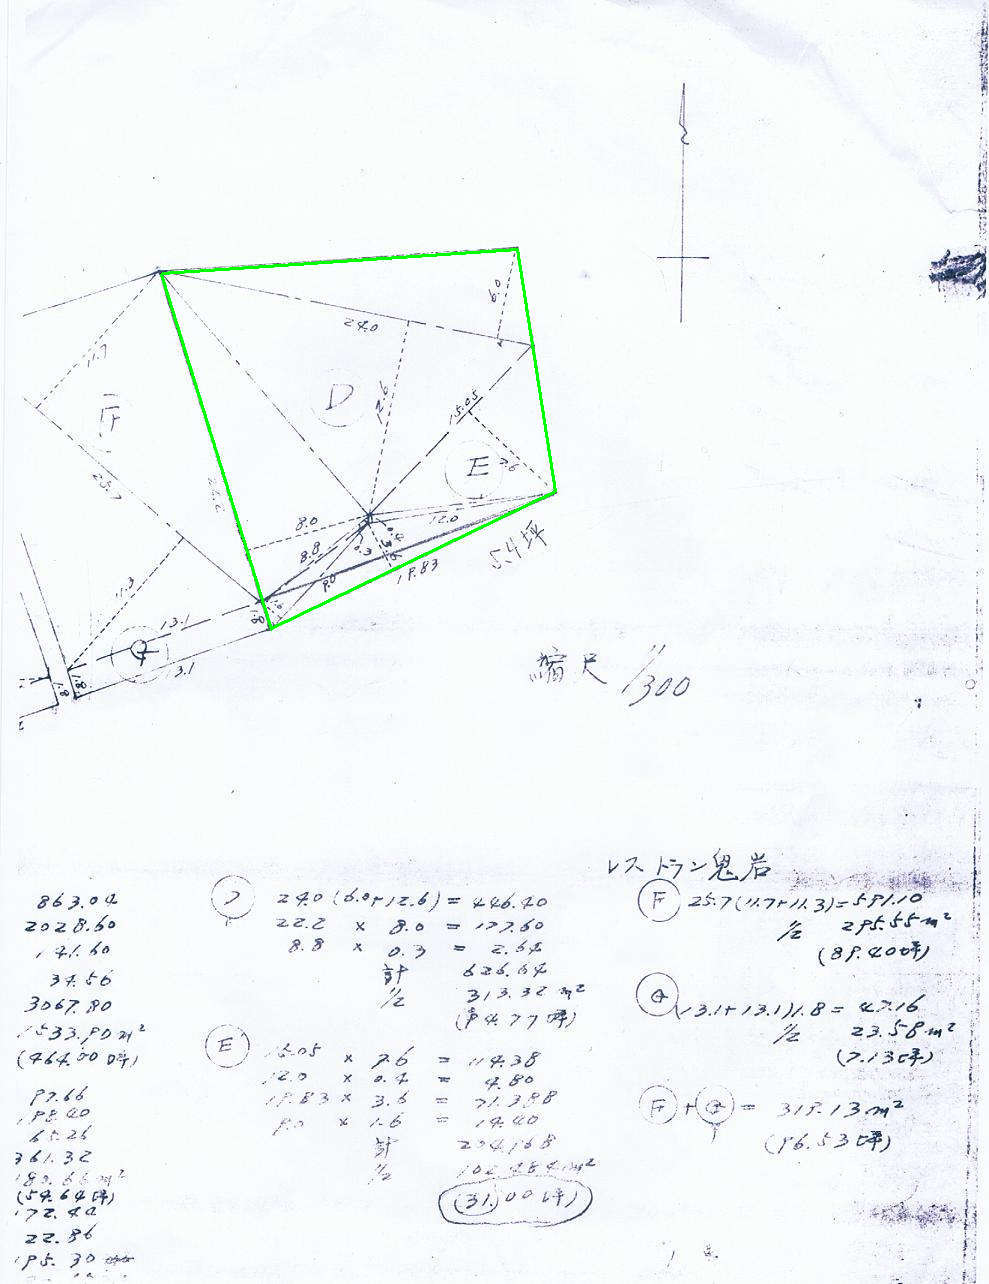 6.0
24.0
11.7
12.6
D
15.05
F
E
7.6
25.7
22.2
8.0
12.0
0.4
8.8
0.3
3.6
5.4坪
19.83
9.0
11.3
1.6
1.8
13.1
13.1
1.8
1.8
縮尺 1/300
レストラン鬼岩
863.04
2028.60
141.60
34.56
3067.80
1533.90m²
(464.00坪)
97.66
198.40
65.26
361.32
180.66m²
(54.64坪)
172.44
22.86
195.30
D 24.0(6.0+12.6)=446.40
22.2 × 8.0 = 177.60
8.8 × 0.3 = 2.64
計 626.64
1/2 313.32m²
(94.77坪)
E 15.05 × 7.6 = 114.38
12.0 × 0.4 = 4.80
19.83 × 3.6 = 71.388
9.0 × 1.6 = 14.40
計 204.968
1/2 102.484m²
(31.00坪)
F 25.7(11.7+11.3)=591.10
1/2 295.55m²
(89.40坪)
G (13.1+13.1)1.8=47.16
1/2 23.58m²
(7.13坪)
F+G= 319.13m²
(96.53坪)